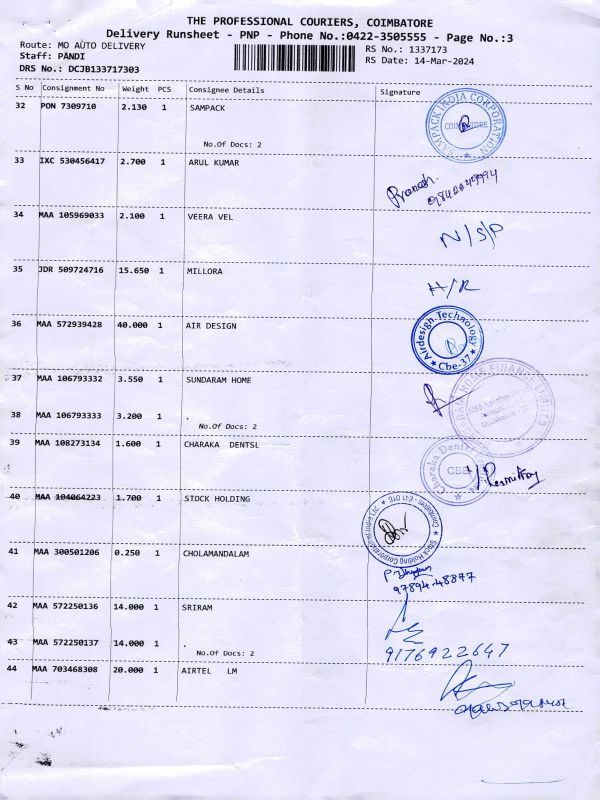 THE PROFESSIONAL COURIERS, COIMBATORE
Delivery Runsheet - PNP - Phone No.:0422-3505555 - Page No.:3
Route: MO AUTO DELIVERY RS No.: 1337173
Staff: PANDI RS Date: 14-Mar-2024
DRS No.: DCJB133717303
S No Consignment No Weight PCS Consignee Details Signature
32 PON 7309710 2.130 1 SAMPACK
SAMPACK INDIA CORPORATION
COIMBATORE
No.Of Docs: 2
33 IXC 530456417 2.700 1 ARUL KUMAR
34 MAA 105969033 2.100 1 VEERA VEL
N/S/P
35 JDR 509724716 15.650 1 MILLORA
H/R
36 MAA 572939428 40.000 1 AIR DESIGN
Airdesign Technology
Cbe-37
37 MAA 106793332 3.550 1 SUNDARAM HOME
38 MAA 106793333 3.200 1 .
No.Of Docs: 2
39 MAA 108273134 1.600 1 CHARAKA DENTSL
Charaka Dental
CBE
40 MAA 104064223 1.700 1 STOCK HOLDING
Stock Holding Corporation of India Ltd.
Coimbatore - 641 018
41 MAA 300501206 0.250 1 CHOLAMANDALAM
97894-48877
42 MAA 572250136 14.000 1 SRIRAM
43 MAA 572250137 14.000 1 .
9176922647
No.Of Docs: 2
44 MAA 703468308 20.000 1 AIRTEL LM